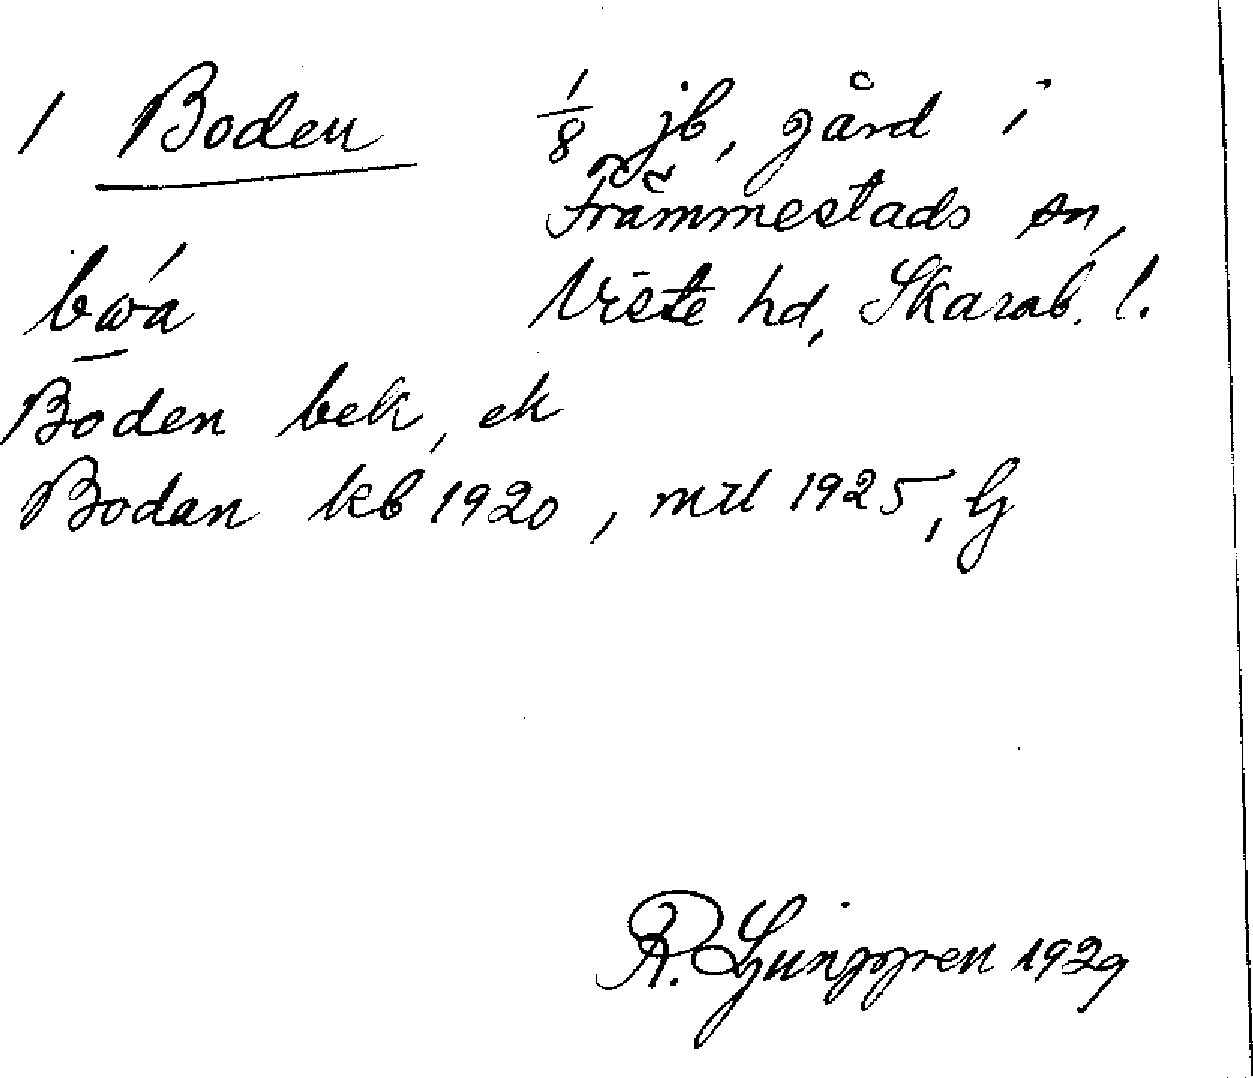 1 Boden 1/8 jb, gård i
Främmestads sn,
bωa Viste hd, Skarab. l.
Boden bek, ek
Bodan kb 1920, mtl 1925, G
R. Ljunggren 1929